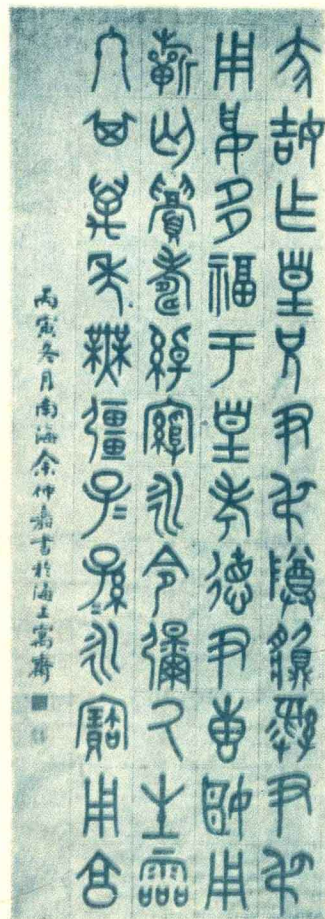 蔡姞乍皇兄尹叔尊䵼彝尹叔
用妥多福于皇考德尹叀姬用
蘄匄眉壽綽綰永令彌氒生霝
冬其萬年無彊子〻孫〻永寶用享
丙寅冬月南海余仲嘉書於滬上寓齋